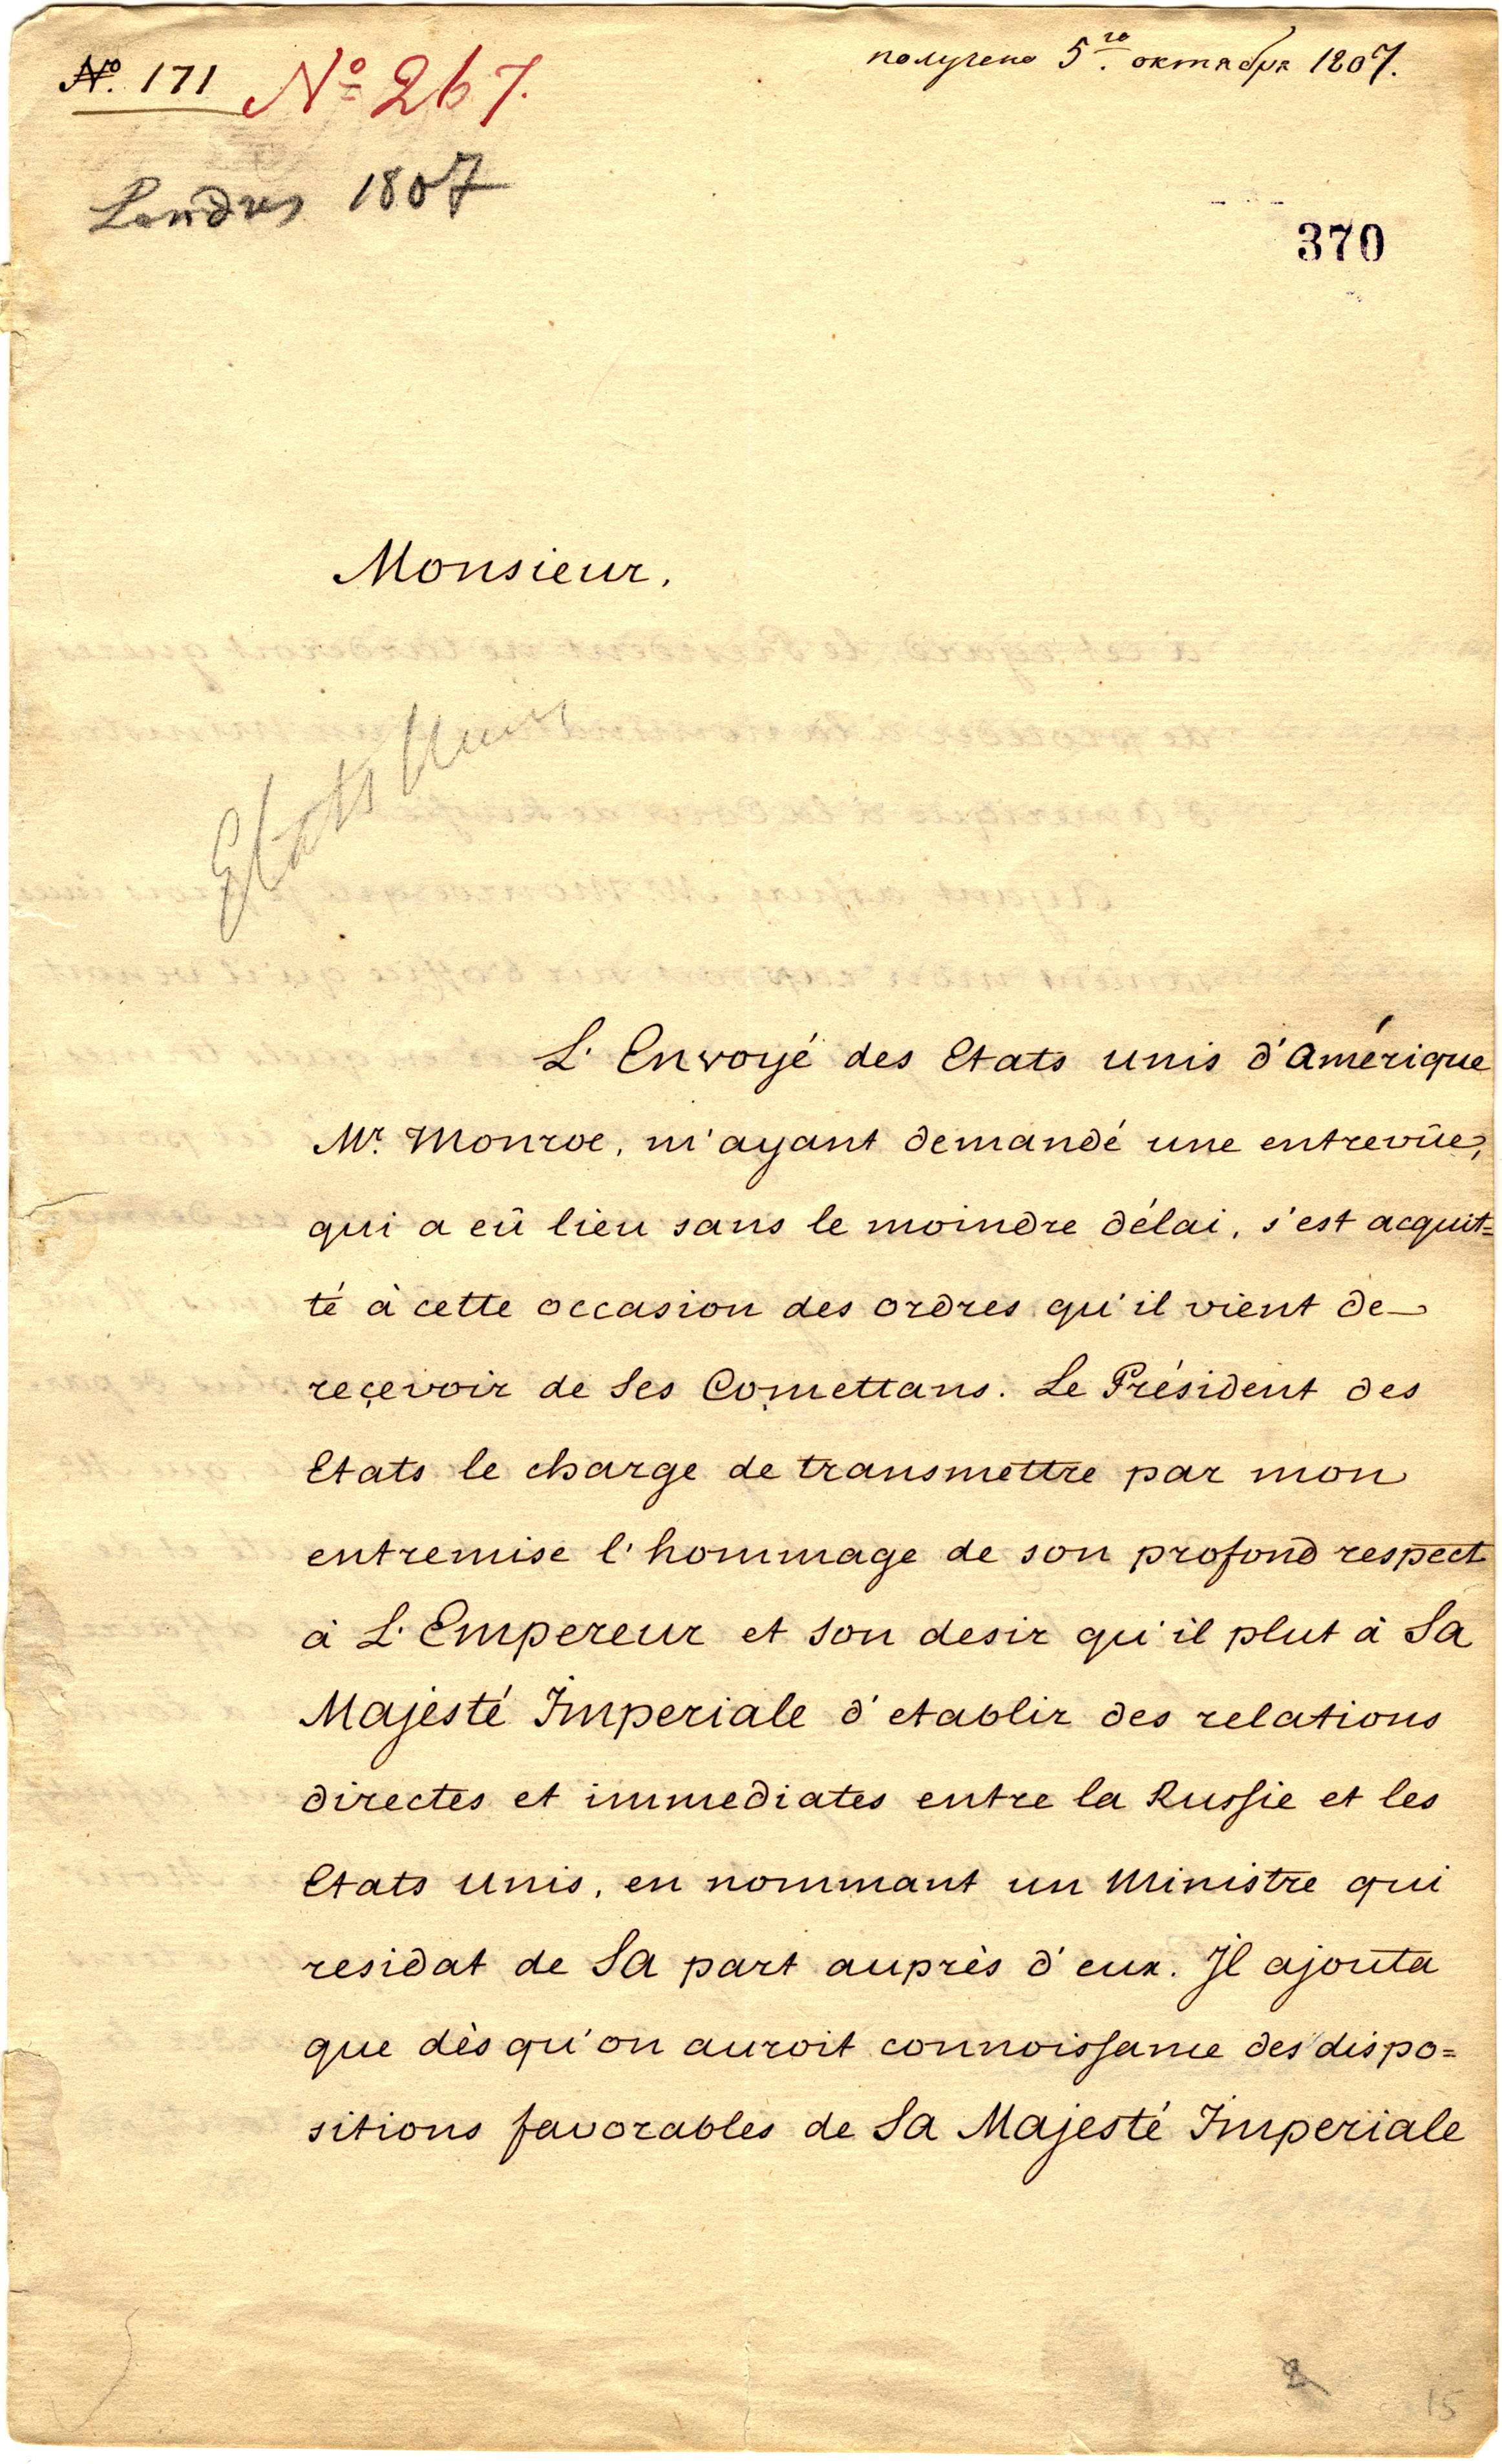 №. 171 № 267.
получено 5.го октября 1807.
Londres 1807
370
Monsieur.
Etats Unis
L'Envoyé des Etats unis d'Amérique
Mr. Monroe, m'ayant demandé une entrevûe,
qui a eû lieu sans le moindre délai, s'est acquit=
té à cette occasion des ordres qu'il vient de
reçevoir de Ses Comettans. Le Président des
Etats le charge de transmettre par mon
entremise l'hommage de son profond respect
à L'Empereur et son desir qu'il plut à Sa
Majesté Imperiale d'etablir des relations
directes et immediates entre la Russie et les
Etats Unis, en nommant un Ministre qui
residat de Sa part auprès d'eux. Il ajouta
que dès qu'on auroit connoissance des dispo=
sitions favorables de Sa Majesté Imperiale
15